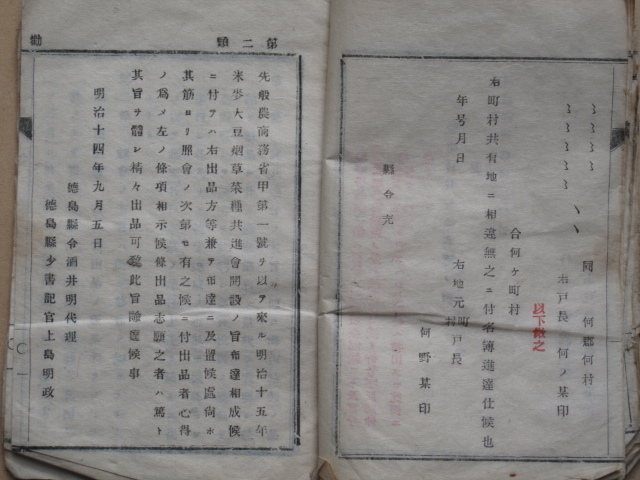 同 何郷何村
右戸長 何ノ某印
合何ケ町村
以下倣之
右町村共有地ニ相違無之ニ付名簿進達仕候也
年号月日
右地元町村戸長
何野某印
縣令宛
第二類
勸
先般農商務省甲第一號ヲ以テ來ル明治十五年
米麥大豆烟草菜種共進會開設ノ旨布達相成候
ニ付テハ右出品方等兼テ布達ニ及置候處尙ホ
其筋ヨリ照會ノ次第モ有之候ニ付出品者心得
ノ爲メ左ノ條項相示候條出品志願之者ハ篤ト
其旨ヲ體シ精々出品可致此旨諭達候事
明治十四年九月五日
德島縣令酒井明代理
德島縣少書記官上島明政